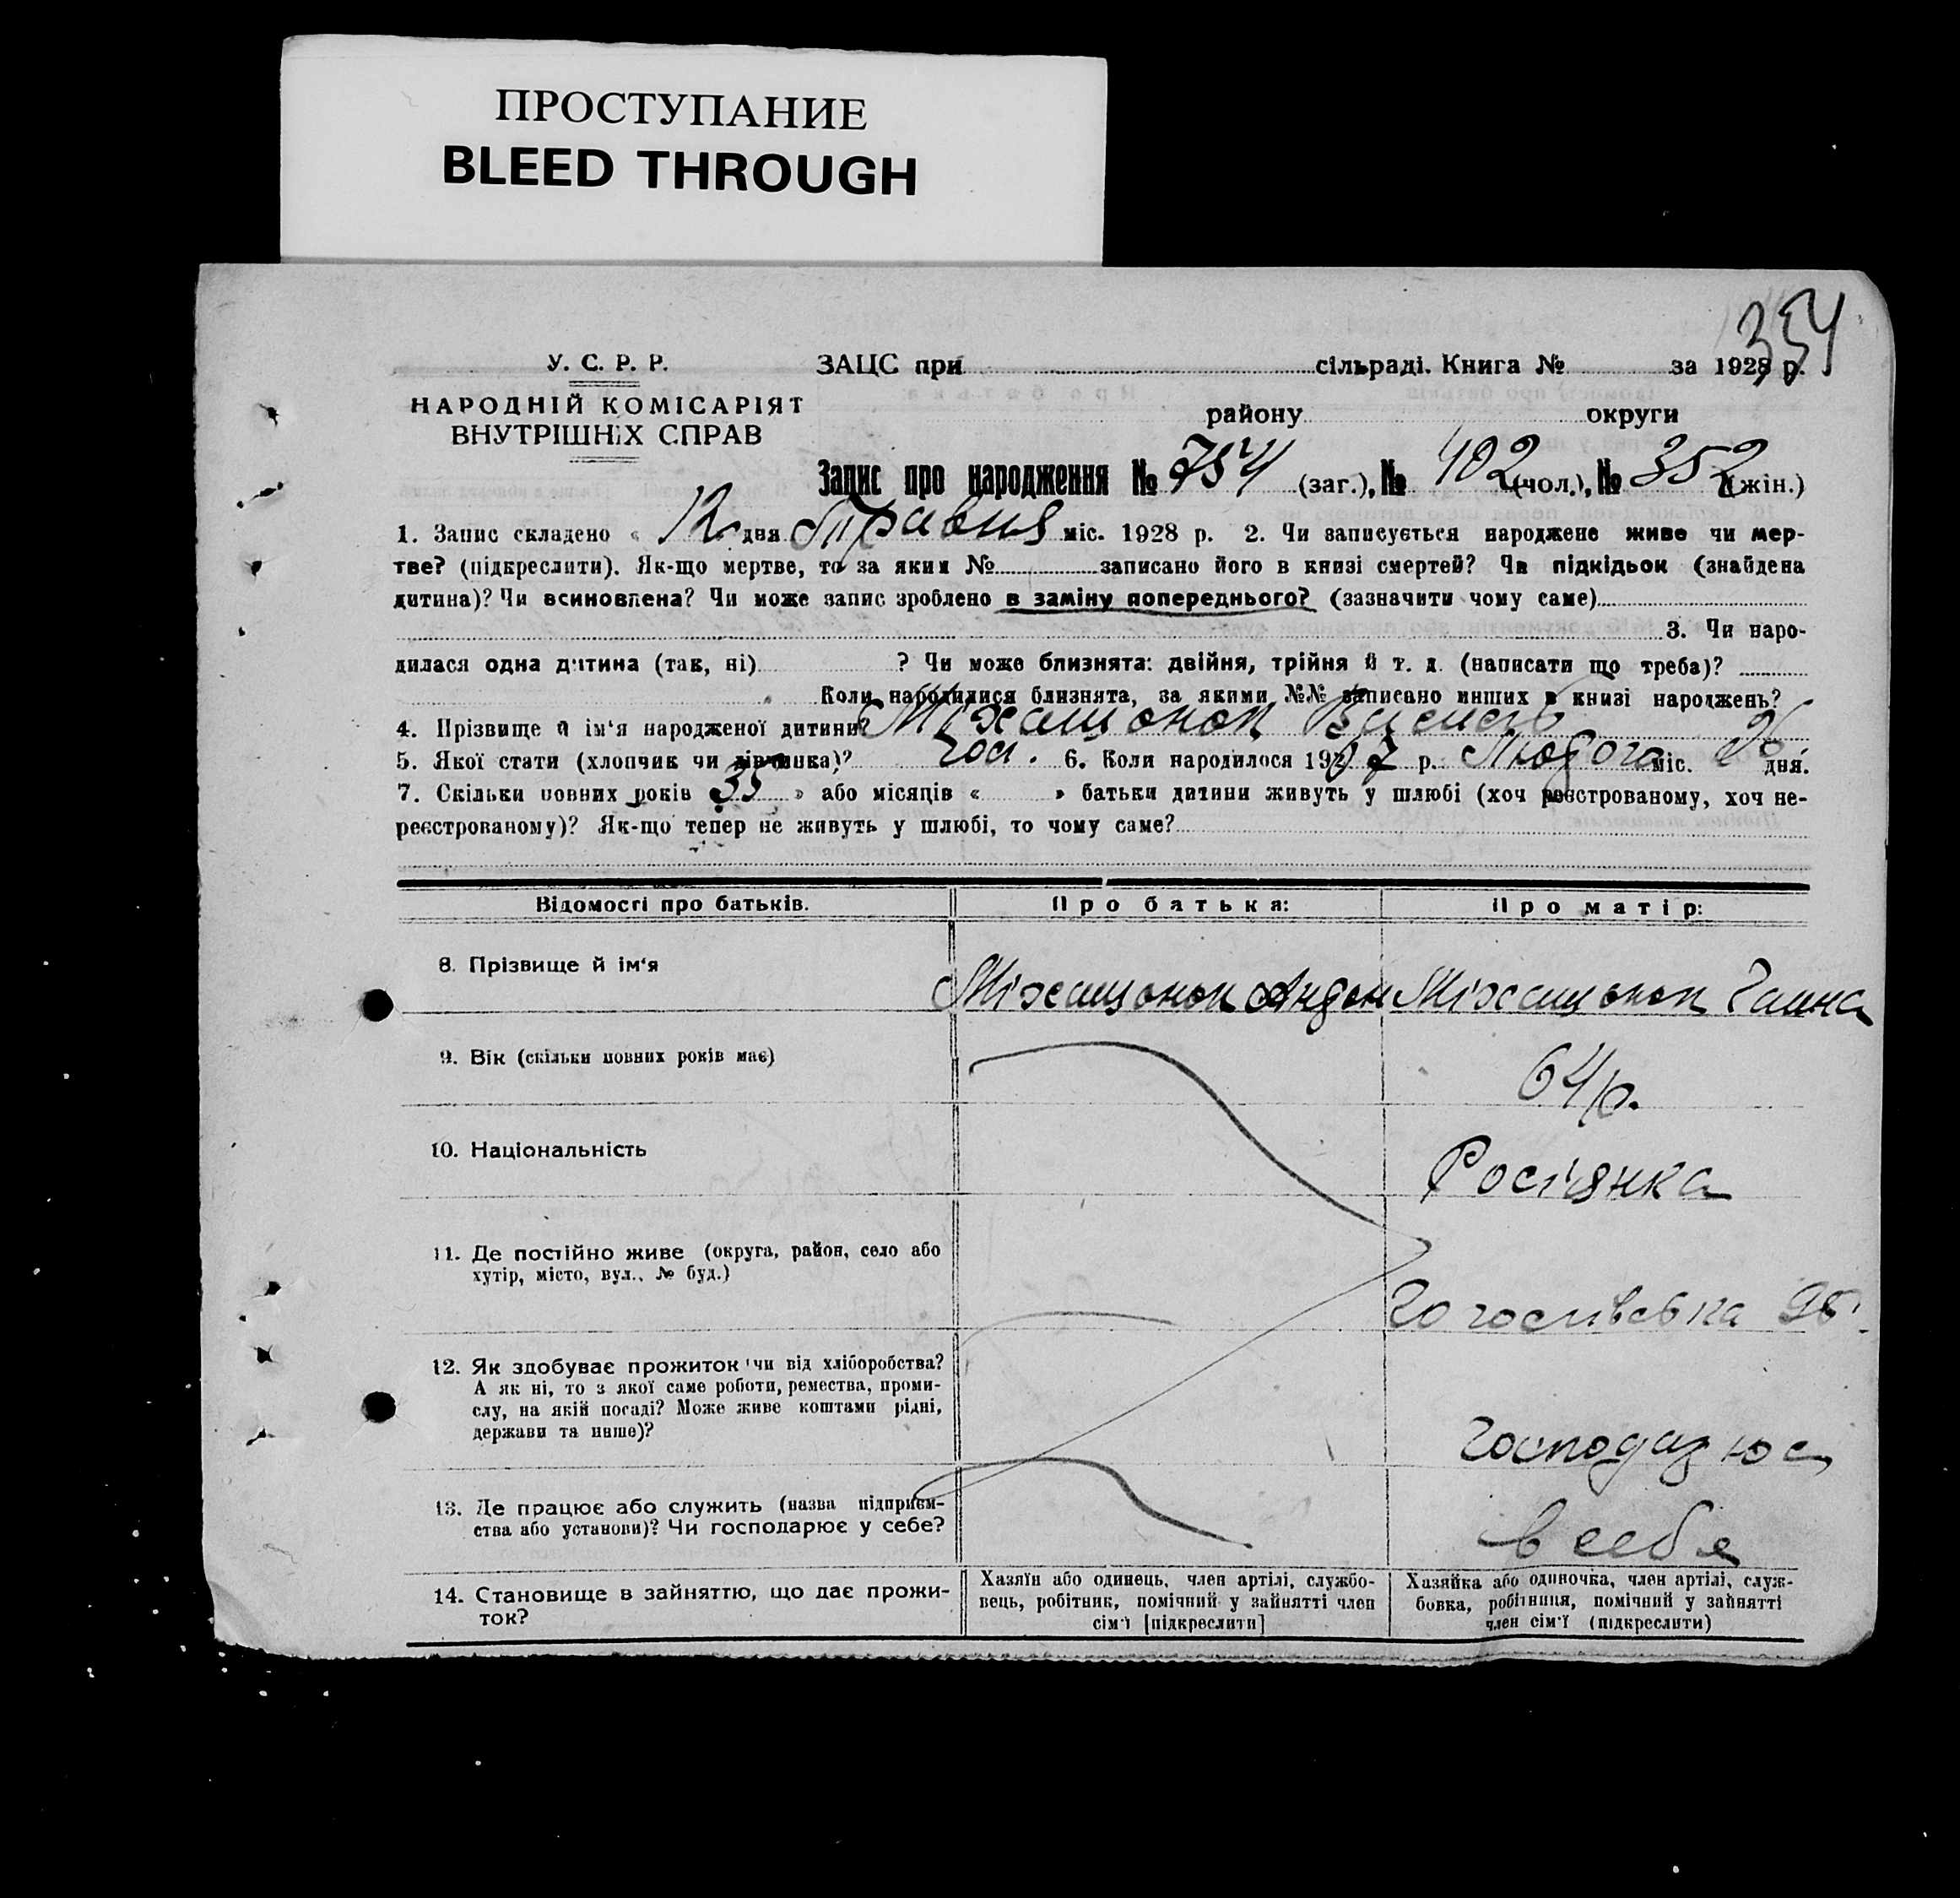 ПРОСТУПАНИЕ
BLEED THROUGH
354
У. С. Р. Р.
НАРОДНІЙ КОМІСАРІЯТ
ВНУТРІШНІХ СПРАВ
ЗАЦС при сільраді. Книга № за 1928 р.
району округи
Запис про народження № 754 (заг.), № 402 (чол.), № 352 (жін.)
1. Запис складено « 12 дня Травня міс. 1928 р. 2. Чи записується народжене живе чи мер-
тве? (підкреслити). Як-що мертве, то за яким № записано його в книзі смертей? Чи підкідьок (знайдена
дитина)? Чи всиновлена? Чи може запис зроблено в заміну попереднього? (зазначити чому саме)
3. Чи наро-
дилася одна дитина (так, ні) ? Чи може близнята: двійня, трійня й т. д. (написати що треба)?
Коли народилися близнята, за якими №№ записано инших в книзі народжень?
4. Прізвище й ім'я народженої дитини?
5. Якої стати (хлопчик чи дівчинка)? чол. 6. Коли народилося 1907 р. Лютого міс. 26 дня.
7. Скільки повних років 35 » або місяців « » батьки дитини живуть у шлюбі (хоч реєстрованому, хоч не-
реєстрованому)? Як-що тепер не живуть у шлюбі, то чому саме?
Відомості про батьків. Про батька: Про матір:
8. Прізвище й ім'я Андон Ганна
9. Вік (скільки повних років має) 64 р.
10. Національність Росіянка
11. Де постійно живе (округа, район, село або
хутір, місто, вул., № буд.) Гоголівська
12. Як здобуває прожиток чи від хліборобства?
А як ні, то з якої саме роботи, ремества, проми-
слу, на якій посаді? Може живе коштами рідні,
держави та инше)?
13. Де працює або служить (назва підприєм-
ства або установи)? Чи господарює у себе? в себе
14. Становище в зайняттю, що дає прожи-
ток?
Хазяїн або одинець, член артілі, службо-
вець, робітник, помічний у зайнятті член
сім'ї [підкреслити]
Хазяйка або одиночка, член артілі, служ-
бовка, робітниця, помічний у зайнятті
член сім'ї (підкреслити)